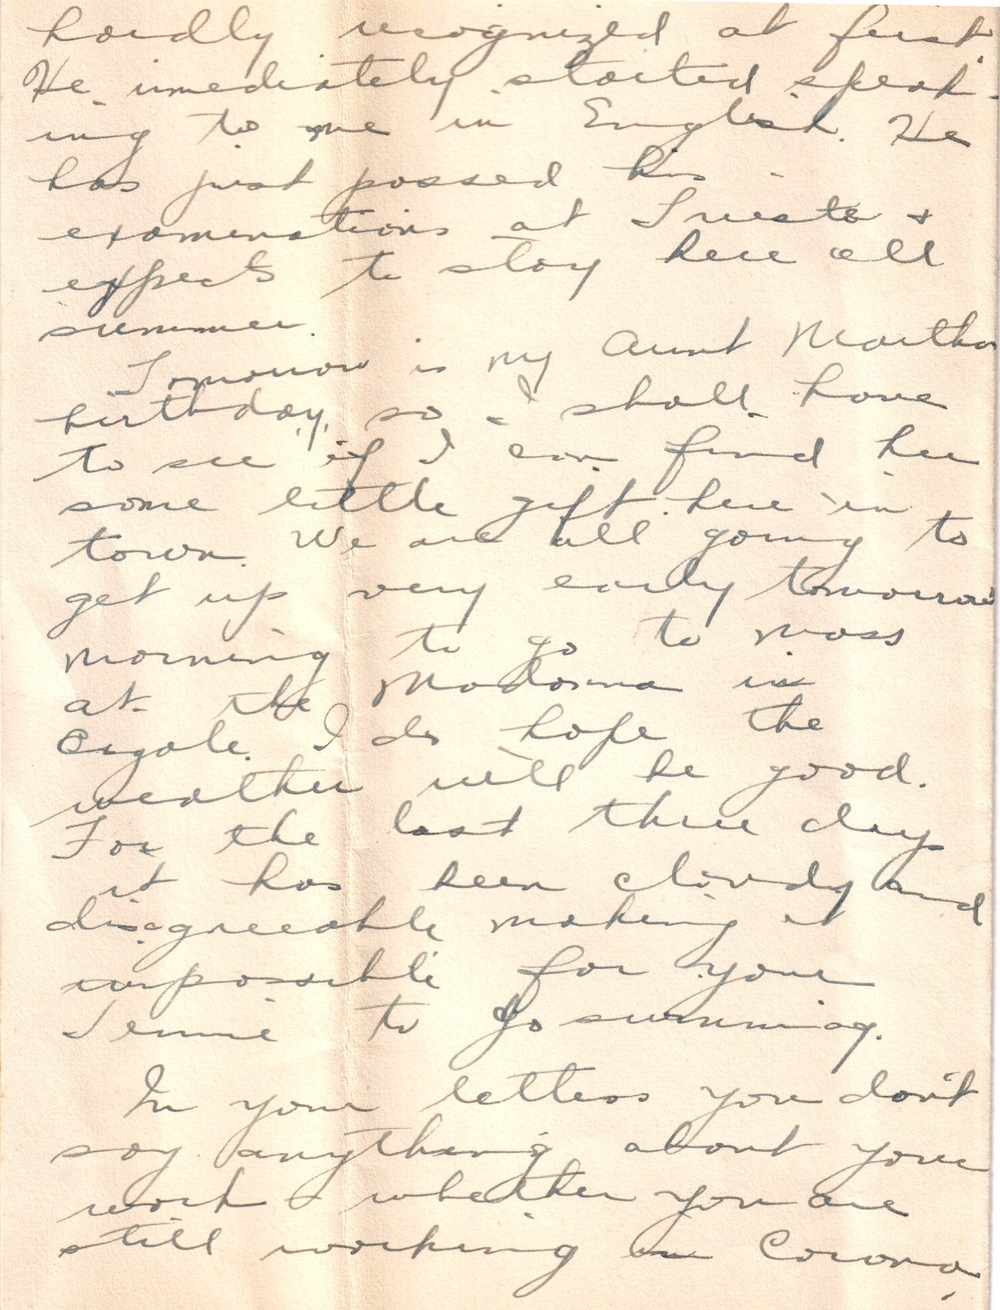 hardly recognized at first
He imediately started speak-
ing to me in English. He
has just passed his
examinations at Trieste +
expects to stay here all
summer.
Tomorrow is my Aunt Martha
birthday, so I shall have
to see if I can find her
some little gift here in
town. We are all going to
get up very early tomorrow
morning to go to mass
at the Madonna in
Cigale. I do hope the
weather will be good.
For the last three days
it has been cloudy and
disagreeable making it
impossible for your
Jennie to go swimming.
In your letters you don't
say anything about your
work whether you are
still working in Corona,